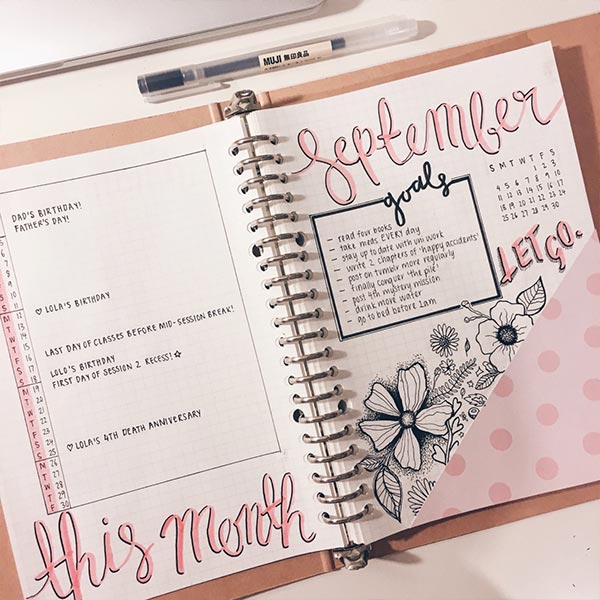 MUJI 無印良品
DAD'S BIRTHDAY!
FATHER'S DAY!
♡ LOLA'S BIRTHDAY
LAST DAY OF CLASSES BEFORE MID-SESSION BREAK!
LOLO'S BIRTHDAY
FIRST DAY OF SESSION 2 RECESS! ☆
♡ LOLA'S 4TH DEATH ANNIVERSARY
this month
September
goals
- read four books
- take meds EVERY day
- stay up to date with uni work
- write 2 chapters of 'happy accidents'
- post on tumblr more regularly
- finally conquer 'the pile'
- post 4th mystery mission
- drink more water
- go to bed before 1am
S M T W T F S
1 2 3
4 5 6 7 8 9 10
11 12 13 14 15 16 17
18 19 20 21 22 23 24
25 26 27 28 29 30
LET GO.